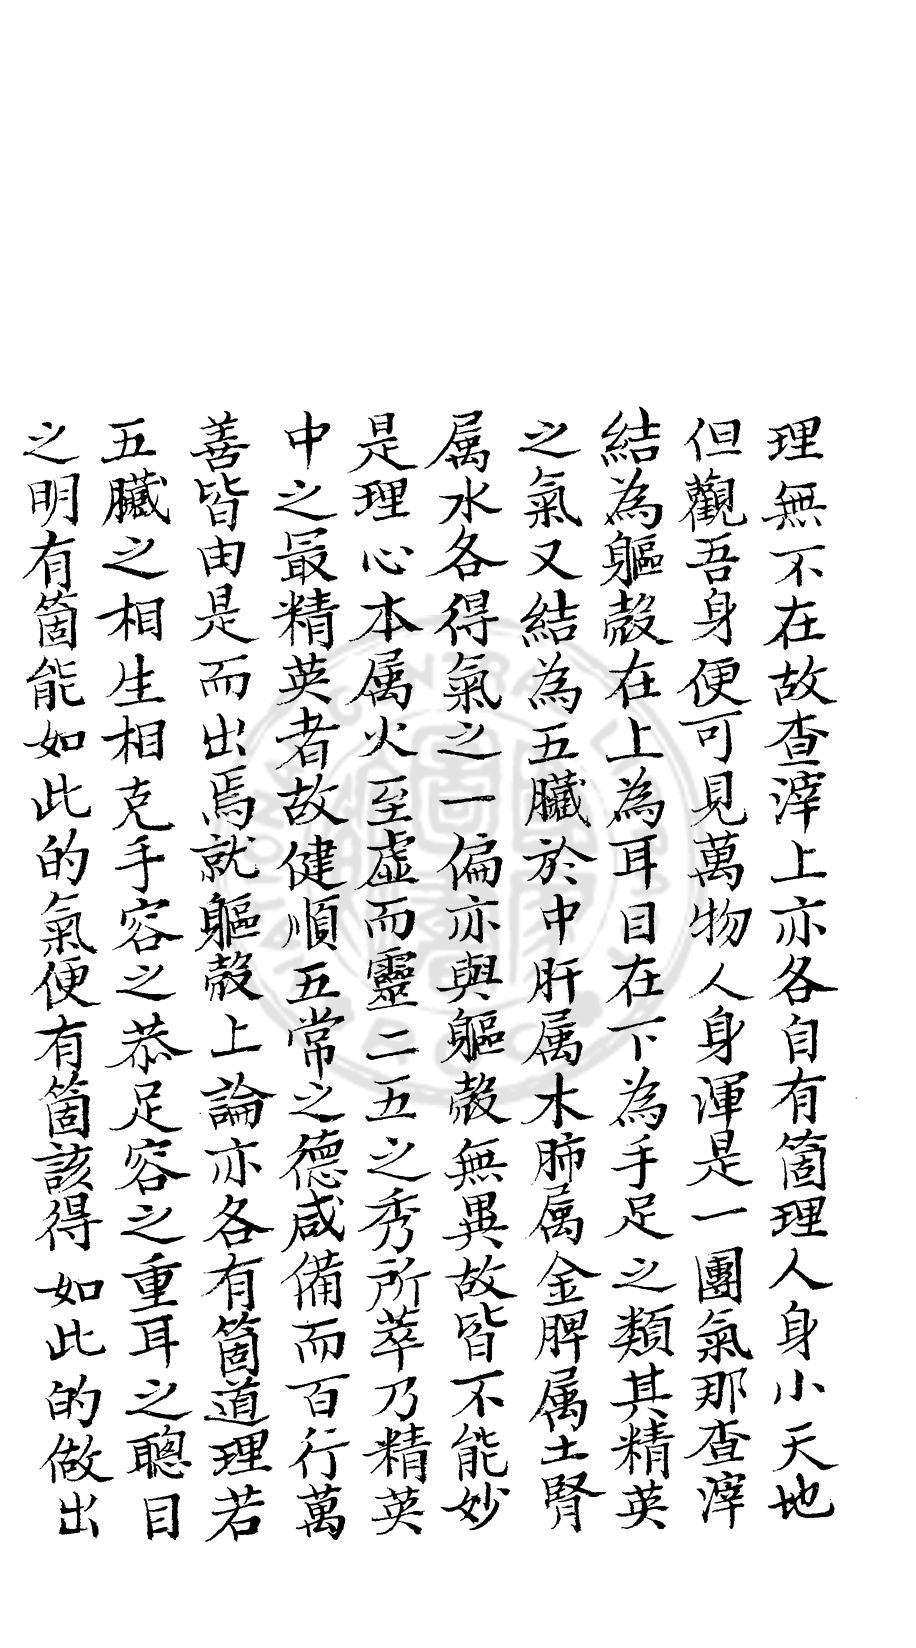 理無不在故查滓上亦各自有箇理人身小天地
但觀吾身便可見萬物人身渾是一團氣那查滓
結為軀殼在上為耳目在下為手足之類其精英
之氣又結為五臟於中肝属木肺属金脾属土腎
属水各得氣之一偏亦與軀殼無異故皆不能妙
是理心本属火至虛而靈二五之秀所萃乃精英
中之最精英者故健順五常之德咸備而百行萬
善皆由是而出焉就軀殼上論亦各有箇道理若
五臟之相生相克手容之恭足容之重耳之聰目
之明有箇能如此的氣便有箇該得如此的做出